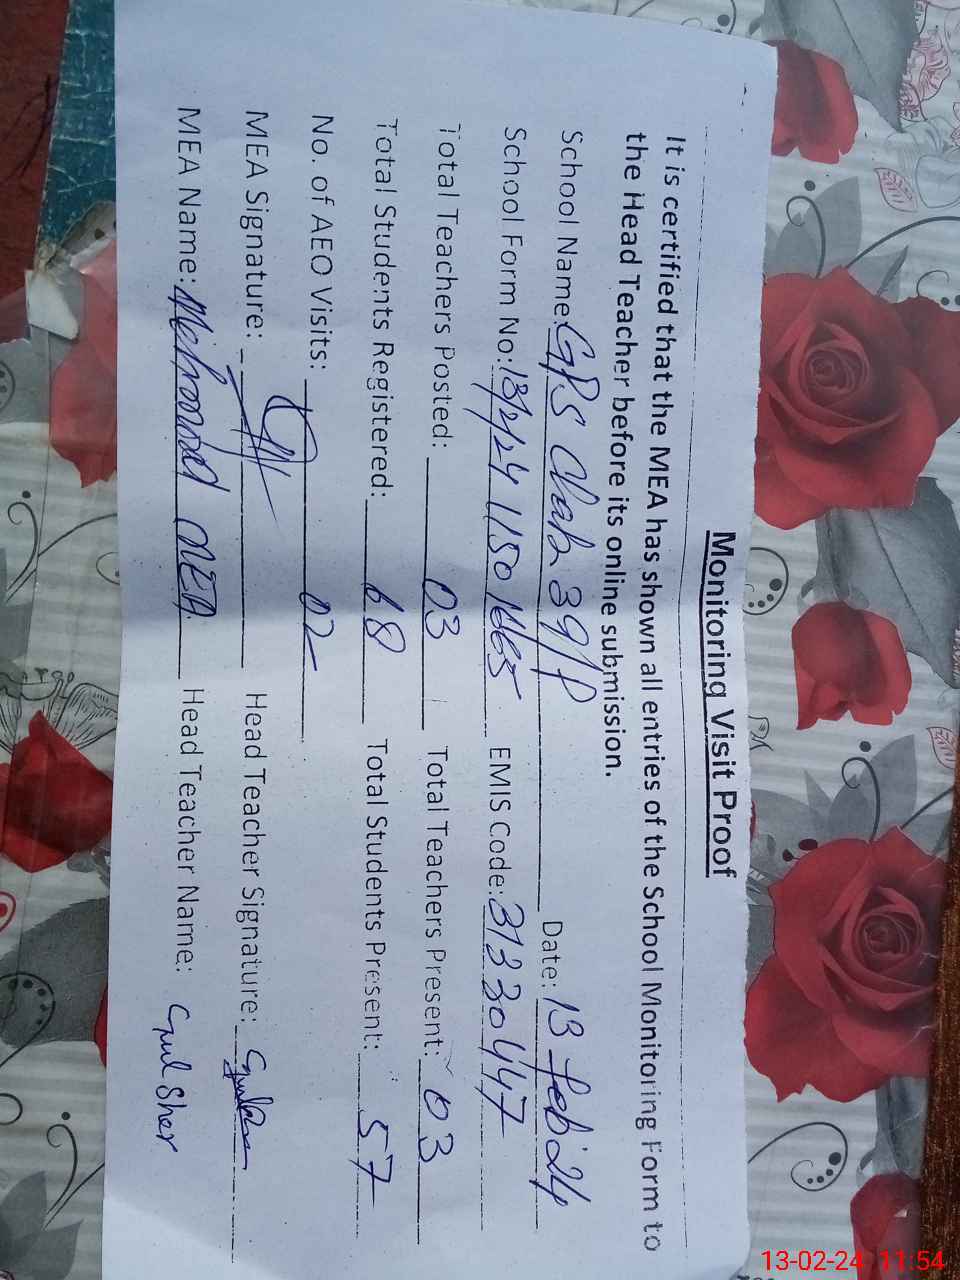 Monitoring Visit Proof
It is certified that the MEA has shown all entries of the School Monitoring Form to
the Head Teacher before its online submission.
School Name: GPS Chak 39/P Date: 13 Feb 24
School Form No: 13/2/24 EMIS Code: 31330447
Total Teachers Posted: 03 Total Teachers Present: 03
Total Students Registered: 68 Total Students Present: 57
No. of AEO Visits: 02
MEA Signature: Head Teacher Signature:
MEA Name: Mehmood MEA Head Teacher Name: Gul Sher
13-02-24 11:54